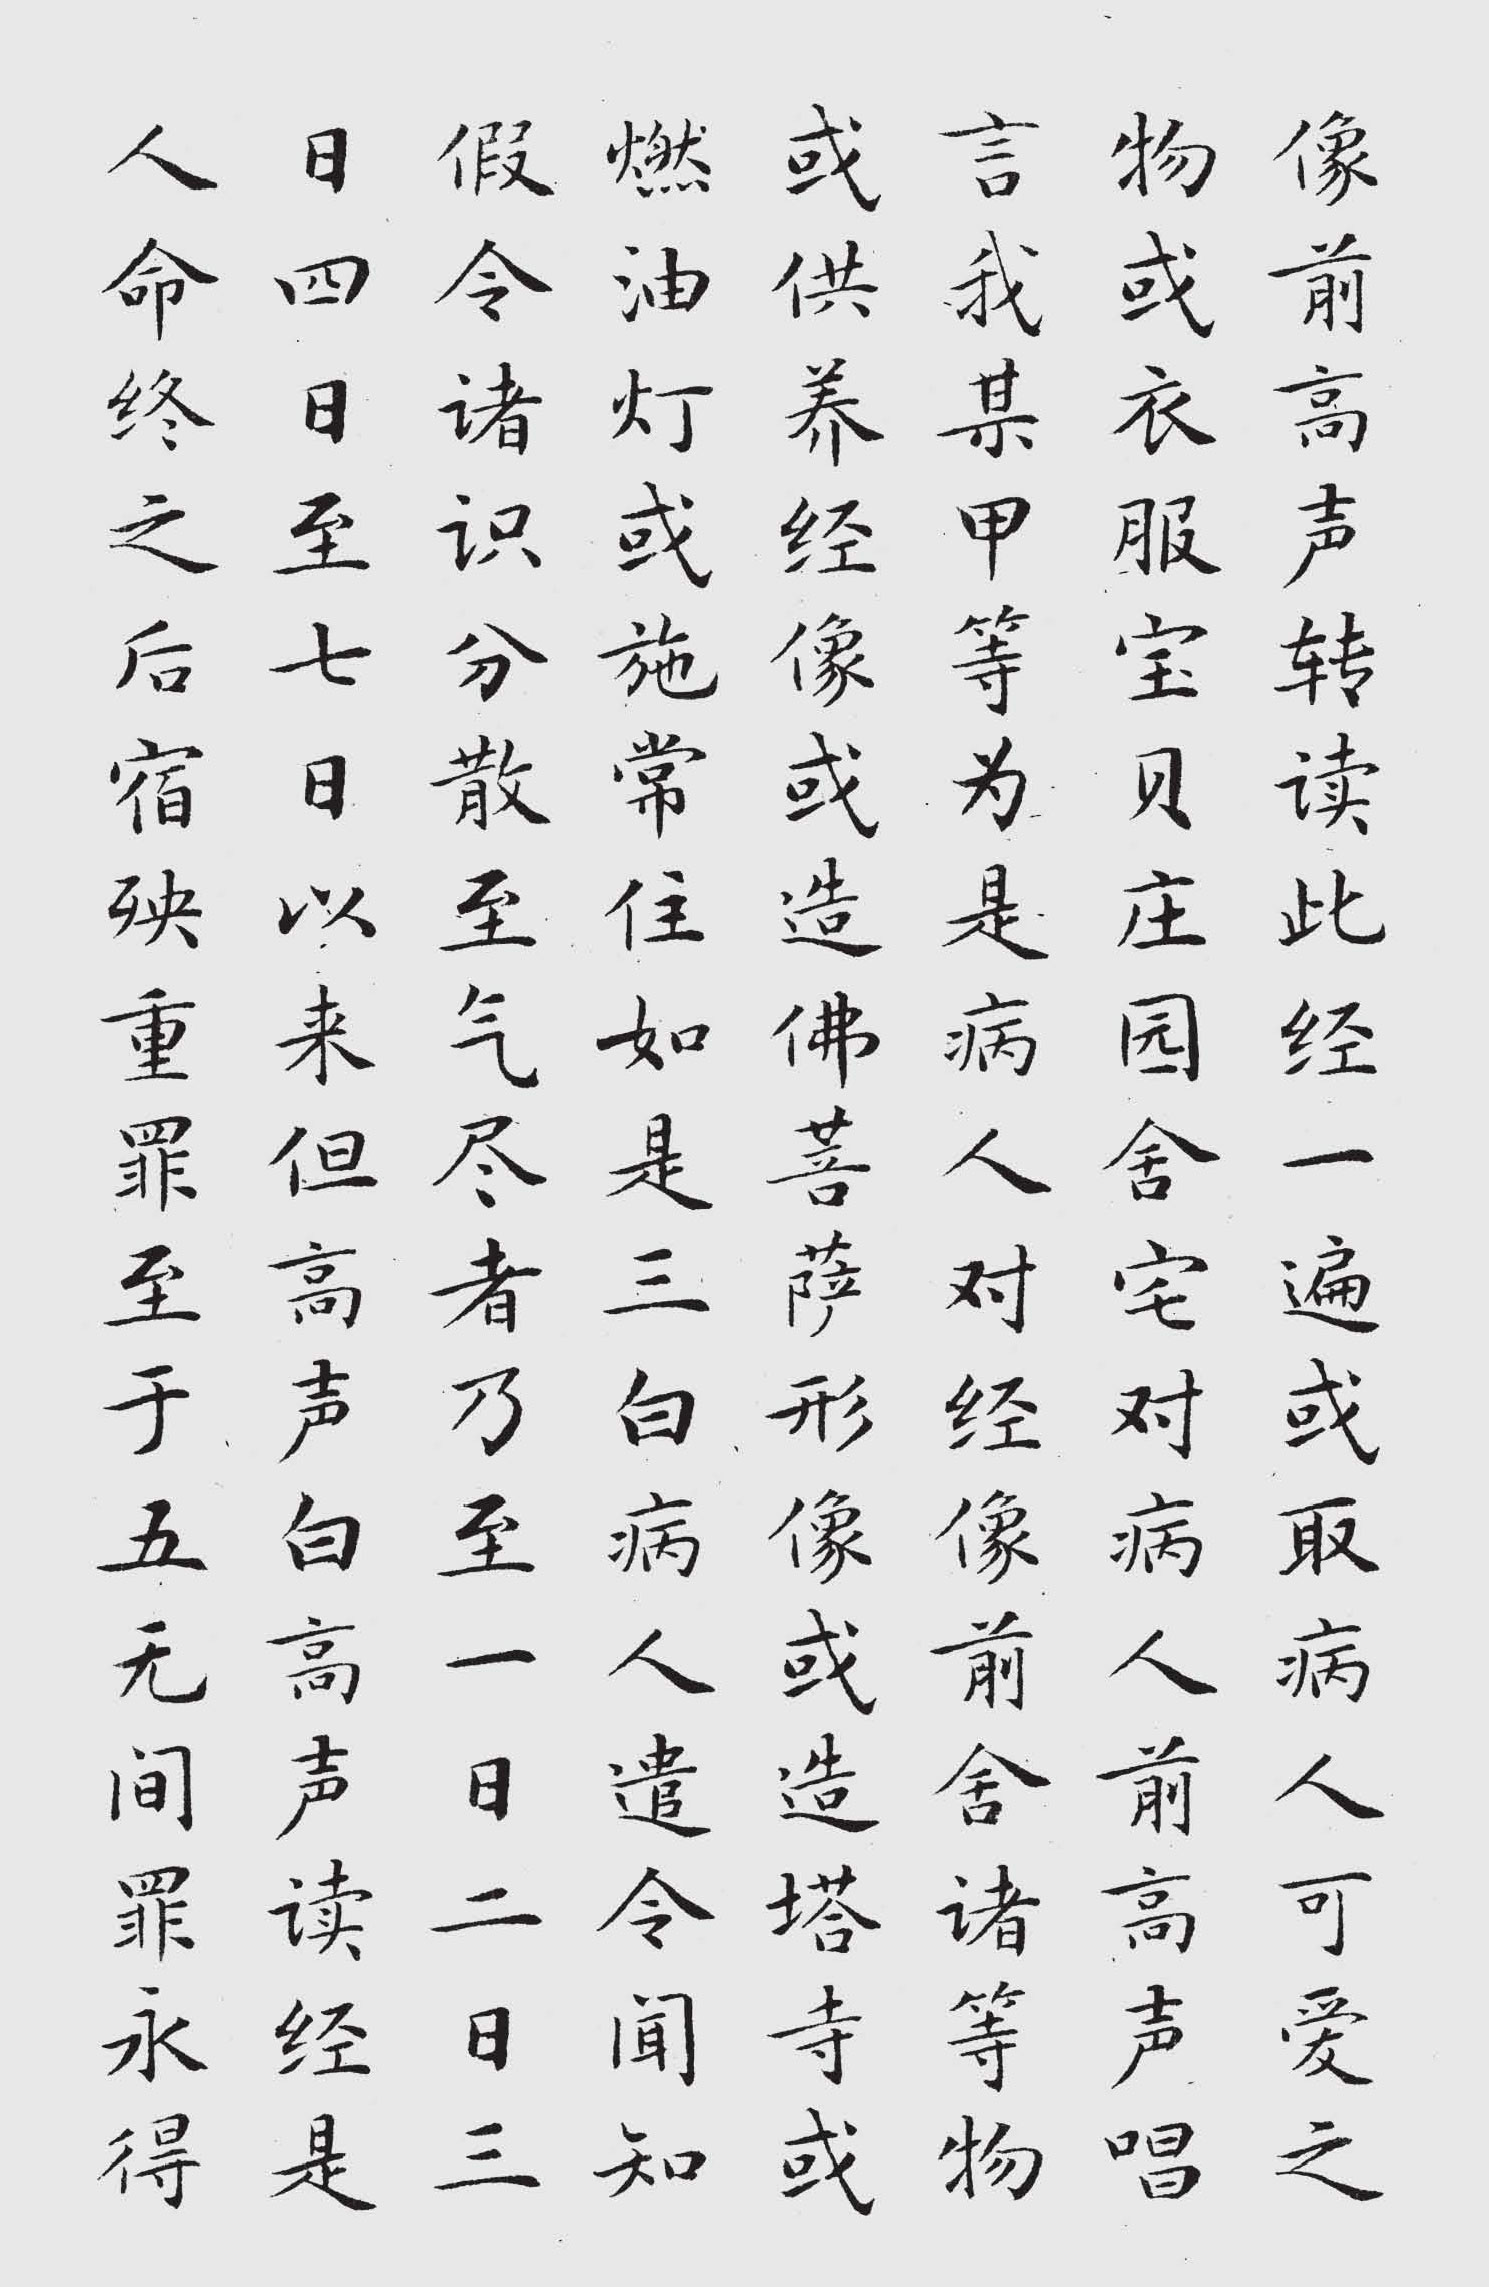 像前高声转读此经一遍或取病人可爱之
物或衣服宝贝庄园舍宅对病人前高声唱
言我某甲等为是病人对经像前舍诸等物
或供养经像或造佛菩萨形像或造塔寺或
燃油灯或施常住如是三白病人遣令闻知
假令诸识分散至气尽者乃至一日二日三
日四日至七日以来但高声白高声读经是
人命终之后宿殃重罪至于五无间罪永得